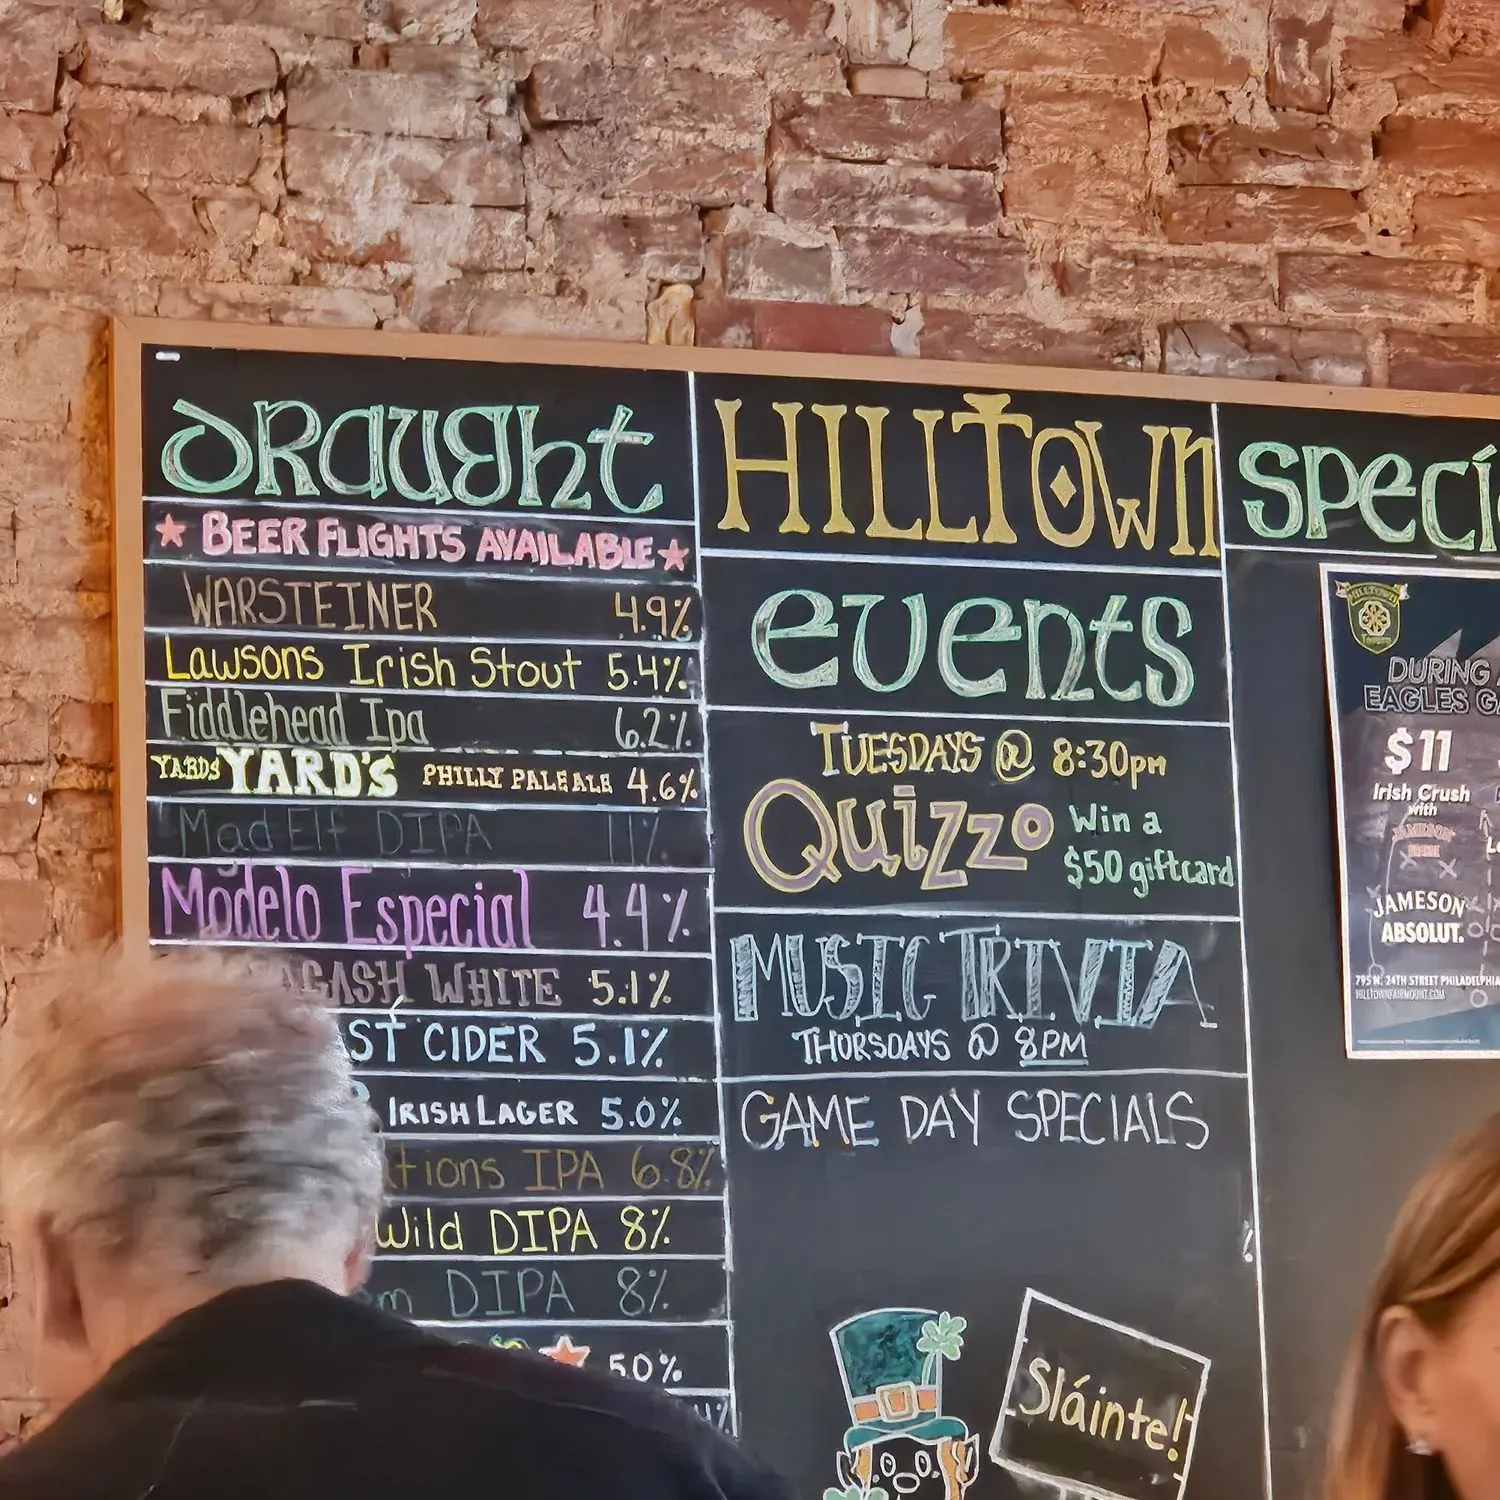 DRAUGHT
BEER FLIGHTS AVAILABLE
WARSTEINER 4.9%
Lawsons Irish Stout 5.4%
Fiddlehead Ipa 6.2%
YARDS YARD'S PHILLY PALE ALE 4.6%
Mad Elf DIPA 11%
Modelo Especial 4.4%
WHITE 5.1%
CIDER 5.1%
IRISH LAGER 5.0%
IPA 6.8%
Wild DIPA 8%
DIPA 8%
5.0%
HILLTOWN
events
TUESDAYS @ 8:30pm
Quizzo Win a
$50 giftcard
MUSIC TRIVIA
THURSDAYS @ 8PM
GAME DAY SPECIALS
Sláinte!
HILLTOWN
DURING
EAGLES
$11
Irish Crush
with
JAMESON
JAMESON
ABSOLUT.
795 N. 24TH STREET PHILADELPHIA
HILLTOWNFAIRMOUNT.COM